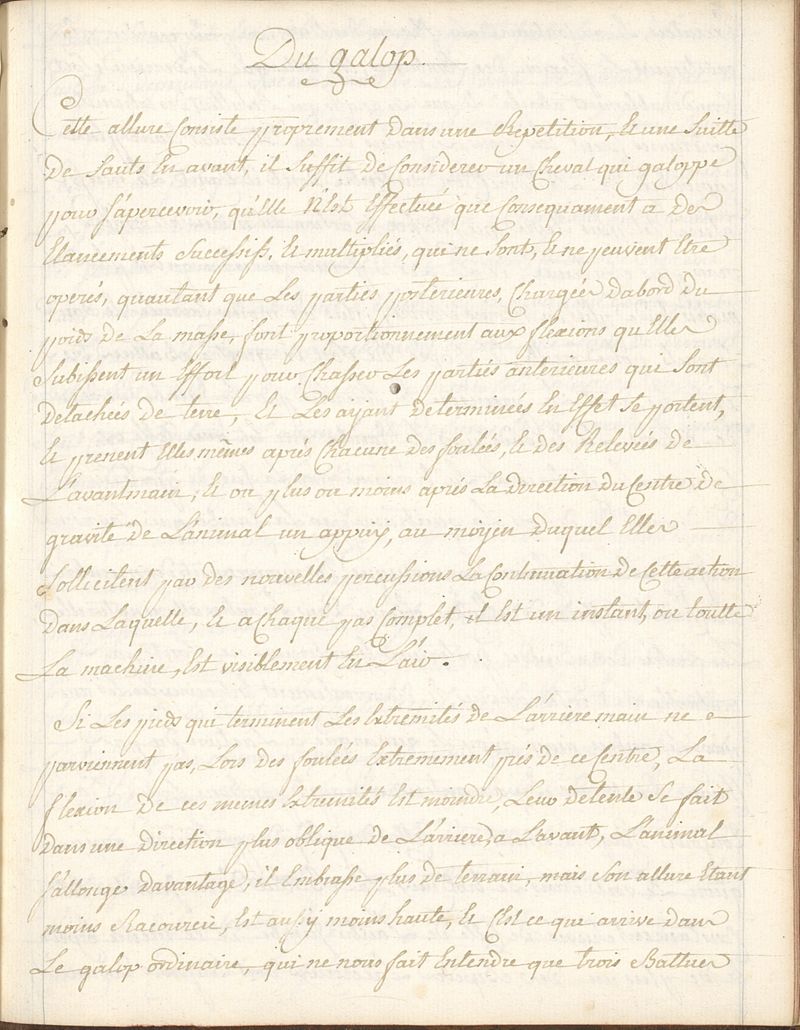 Du galop.
Cette allure Consiste proprement dans une Repetition, & une Suitte
de Sauts En avant, il Suffit de Considerer un Cheval qui galoppe
pour s'apercevoir, qu'Elle N'Est Effectuée que Consequament a des
Elancements Successifs, & multipliés, qui ne Sont, & ne peuvent Etre
operés, quautant que Les parties posterieures, Chargées Dabord du
poids de La masse, font proportionnement aux flexions qu'Elles
Subissent un Effort pour Chasser Les parties anterieures qui Sont
detachées de terre, & Les ayant determinées En Effet Se portent,
& prenent Elles mêmes aprés Chacune des foulées, & des Relevées de
L'avantmain, & ou plus ou moins aprés La direction du Centre de
gravité de L'animal un appuy, au moyen duquel Elles
Sollicitent par des nouvelles percussions La Continuation de Cette action
dans Laquelle, & a Chaque pas Complet, il Est un instant, ou toutte
La machine, Est visiblement En L'air.
Si Les pieds qui terminent Les Extremités de L'arriere main ne
parviennent pas, Lors des foulées Extremement prés de ce Centre, La
flexion de ces memes Extremités Est moindre, Leur detente Se fait
dans une direction plus oblique de L'arriere a L'avant, L'animal
S'allonge davantage, il Embrasse plus de terrain, mais Son allure Etant
moins Racourcie, Est aussy moins haute, & C'Est ce qui arrive dans
Le galop ordinaire, qui ne nous fait Entendre que trois Battues